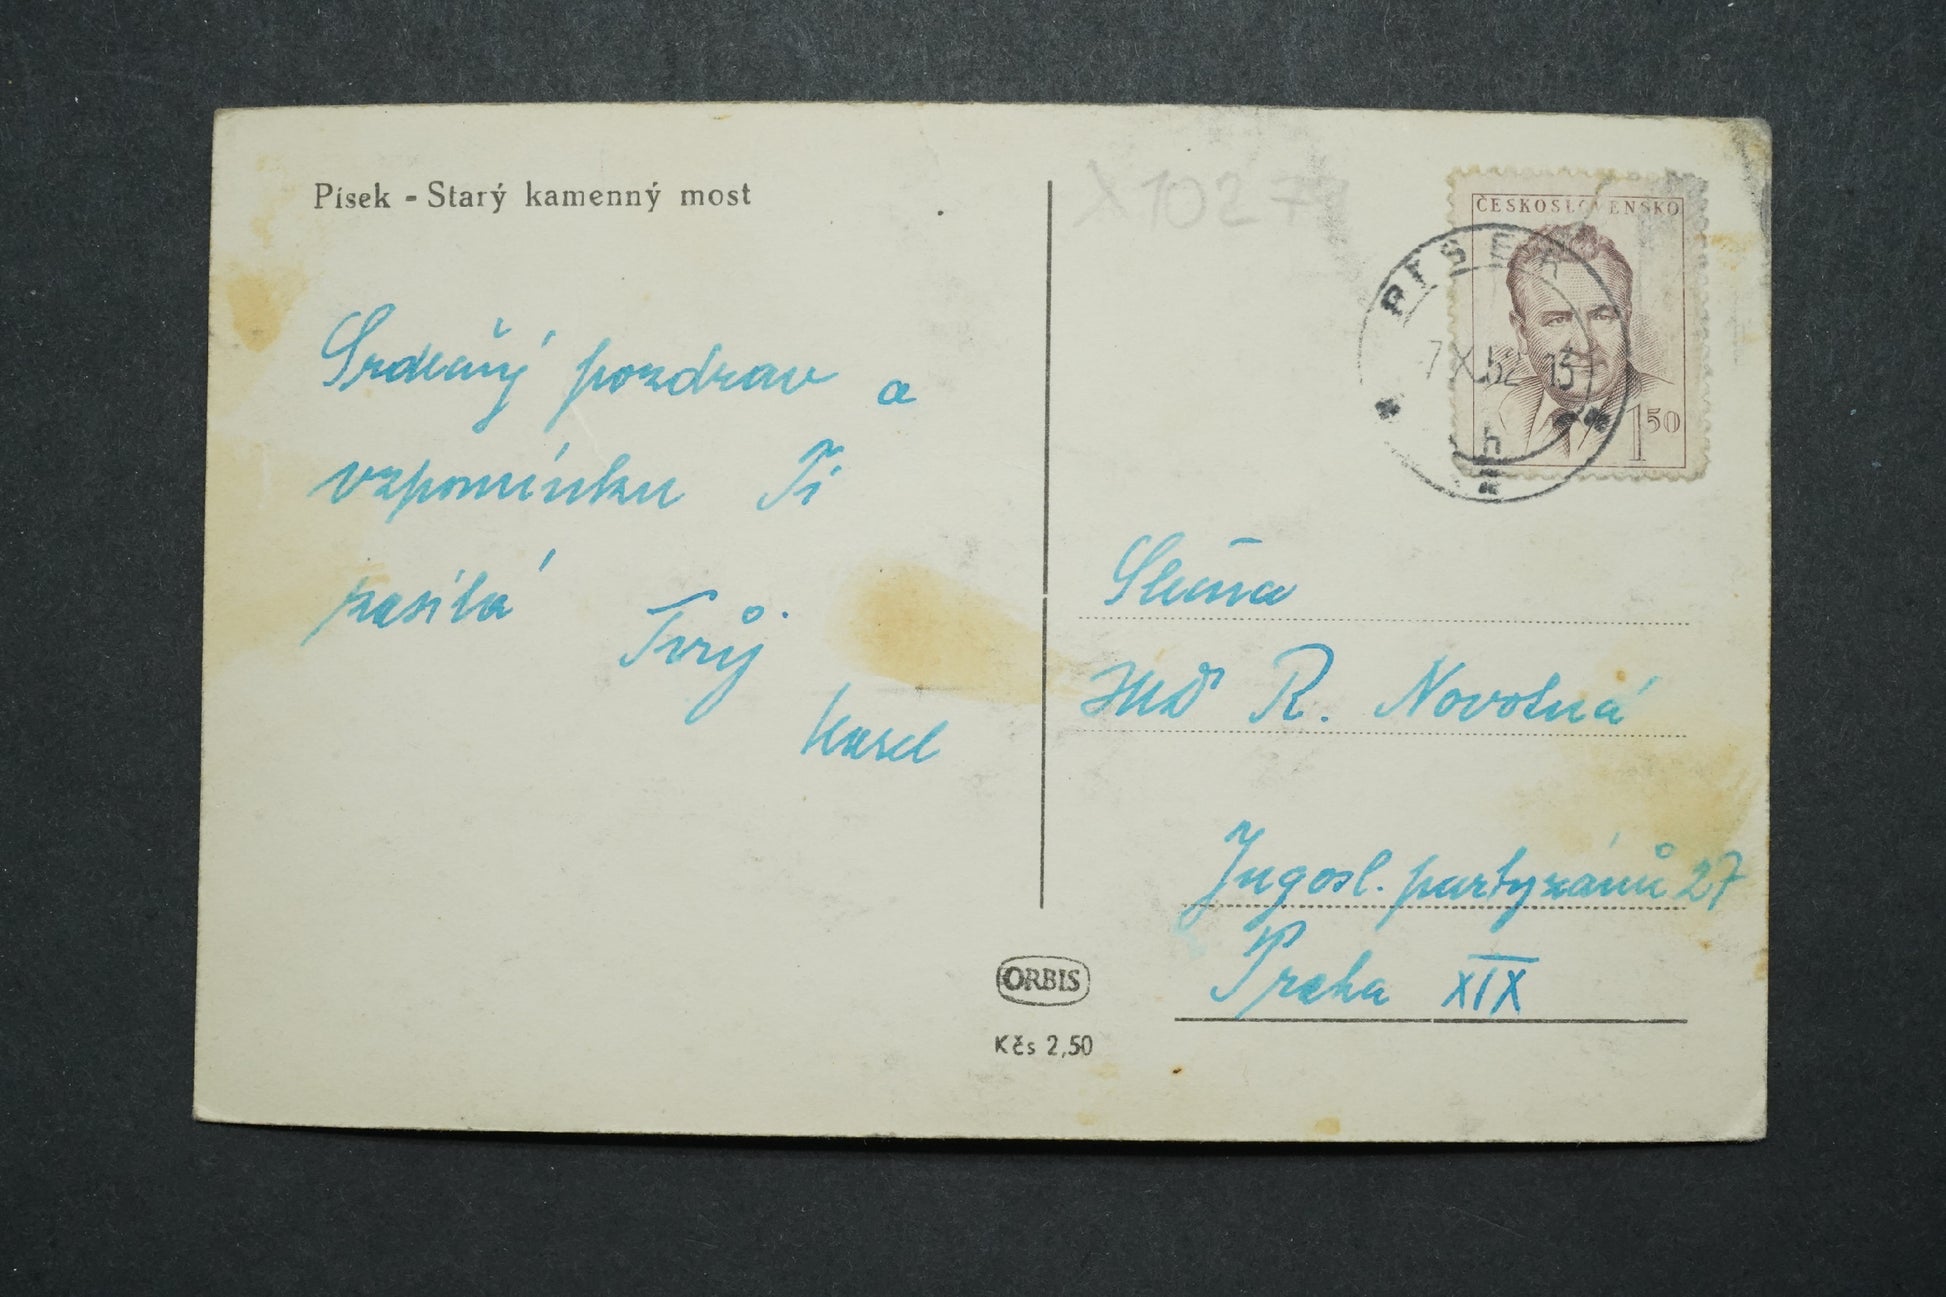 Písek - Starý kamenný most
Srdečný pozdrav a
vzpomínku Ti
zasílá
Tvůj
Karel
ORBIS
Kčs 2,50
X10277
ČESKOSLOVENSKO
1 50
PÍSEK
7 X.52 13
h
Slečna
R. Novotná
Jugosl. partyzánů 27
Praha XIX